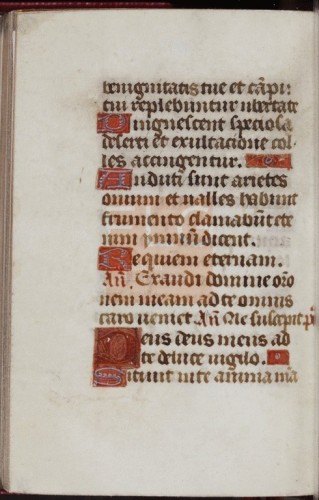 benignitatis tue et cãpi:
tui replebuntur ubertate
Pinguescent speciosa
deserti et exultacione col-
les accingentur.
Induti sunt arietes
ouium et ualles habunt
frumento clamabũt ete
nim ymnũ dicent.
Requiem eternam.
Añ. Exaudi domine oro
nem meam ad te omnis
caro ueniet. Añ. Me suscepit.p̃s
Deus deus meus ad
te de luce uigilo.
Sitiuit in te anima mã